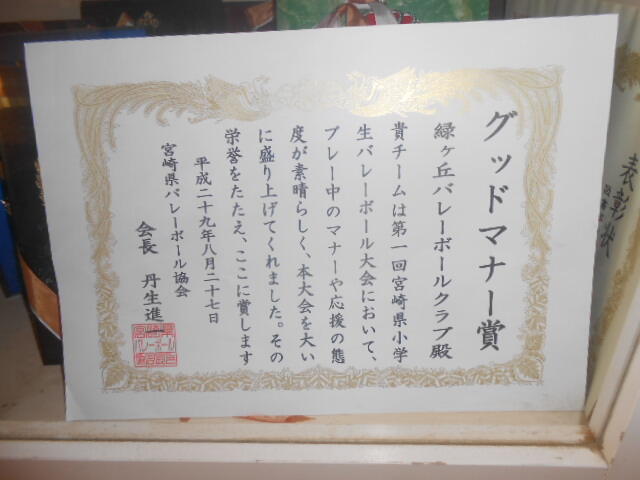 グッドマナー賞
緑ヶ丘バレーボールクラブ殿
貴チームは第一回宮崎県小学
生バレーボール大会において、
プレー中のマナーや応援の態
度が素晴らしく、本大会を大い
に盛り上げてくれました。その
栄誉をたたえ、ここに賞します
平成二十九年八月二十七日
宮崎県バレーボール協会
会長 丹生進
表彰状